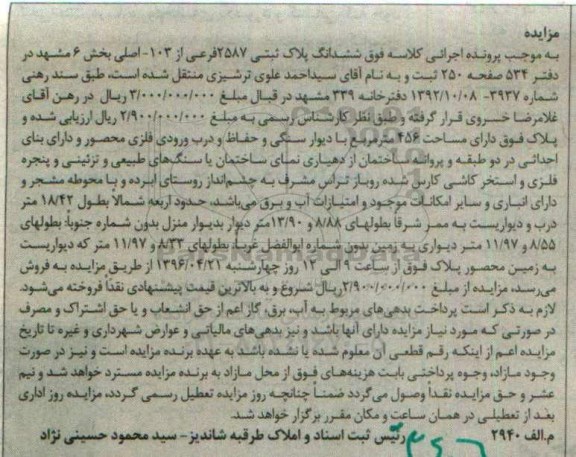 مزایده
به موجب پرونده اجرائی کلاسه فوق ششدانگ پلاک ثبتی ۲۵۸۷فرعی از ۱۰۳- اصلی بخش ۶ مشهد در
دفتر ۵۳۴ صفحه ۲۵۰ ثبت و به نام آقای سیداحمد علوی ترشیزی منتقل شده است، طبق سند رهنی
شماره ۳۹۳۷- ۱۳۹۲/۱۰/۰۸ دفترخانه ۳۳۹ مشهد در قبال مبلغ ۳/۰۰۰/۰۰۰/۰۰۰ ریال در رهن آقای
غلامرضا خسروی قرار گرفته و طبق نظر کارشناس رسمی به مبلغ ۲/۹۰۰/۰۰۰/۰۰۰ ریال ارزیابی شده و
پلاک فوق دارای مساحت ۴۵۶ مترمربع با دیوار سنگی و حفاظ و درب ورودی فلزی محصور و دارای بنای
احداثی در دو طبقه و پروانه ساختمان از دهیاری نمای ساختمان با سنگ‌های طبیعی و تزئینی و پنجره
فلزی و استخر کاشی کاری شده روباز تراس مشرف به چشم‌انداز روستای ابرده و با محوطه مشجر و
دارای انباری و سایر امکانات موجود و امتیازات آب و برق می‌باشد، حدود اربعه شمالا بطول ۱۸/۴۲ متر
درب و دیواریست به ممر شرقا بطولهای ۸/۸۸ و ۱۳/۹۰متر دیوار بدیوار منزل بدون شماره جنوبا: بطولهای
۸/۵۵ و ۱۱/۹۷ متر دیواری به زمین بدون شماره ابوالفضل غربا: بطولهای ۸/۳۳ و ۱۱/۹۷ متر که دیواریست
به زمین محصور پلاک فوق از ساعت ۹ الی ۱۲ روز چهارشنبه ۱۳۹۶/۰۴/۲۱ از طریق مزایده به فروش
می‌رسد، مزایده از مبلغ ۲/۹۰۰/۰۰۰/۰۰۰ریال شروع و به بالاترین قیمت پیشنهادی نقدا فروخته می‌شود.
لازم به ذکر است پرداخت بدهی‌های مربوط به آب، برق، گاز اعم از حق انشعاب و یا حق اشتراک و مصرف
در صورتی که مورد نیاز مزایده دارای آنها باشد و نیز بدهی‌های مالیاتی و عوارض شهرداری و غیره تا تاریخ
مزایده اعم از اینکه رقم قطعی آن معلوم شده یا نشده باشد به عهده برنده مزایده است و نیز در صورت
وجود مازاد، وجوه پرداختی بابت هزینه‌های فوق از محل مازاد به برنده مزایده مسترد خواهد شد و نیم
عشر و حق مزایده نقدا وصول می‌گردد ضمنا چنانچه روز مزایده تعطیل رسمی گردد، مزایده روز اداری
بعد از تعطیلی در همان ساعت و مکان مقرر برگزار خواهد شد.
م.الف ۲۹۴۰ رئیس ثبت اسناد و املاک طرقبه شاندیز- سید محمود حسینی نژاد